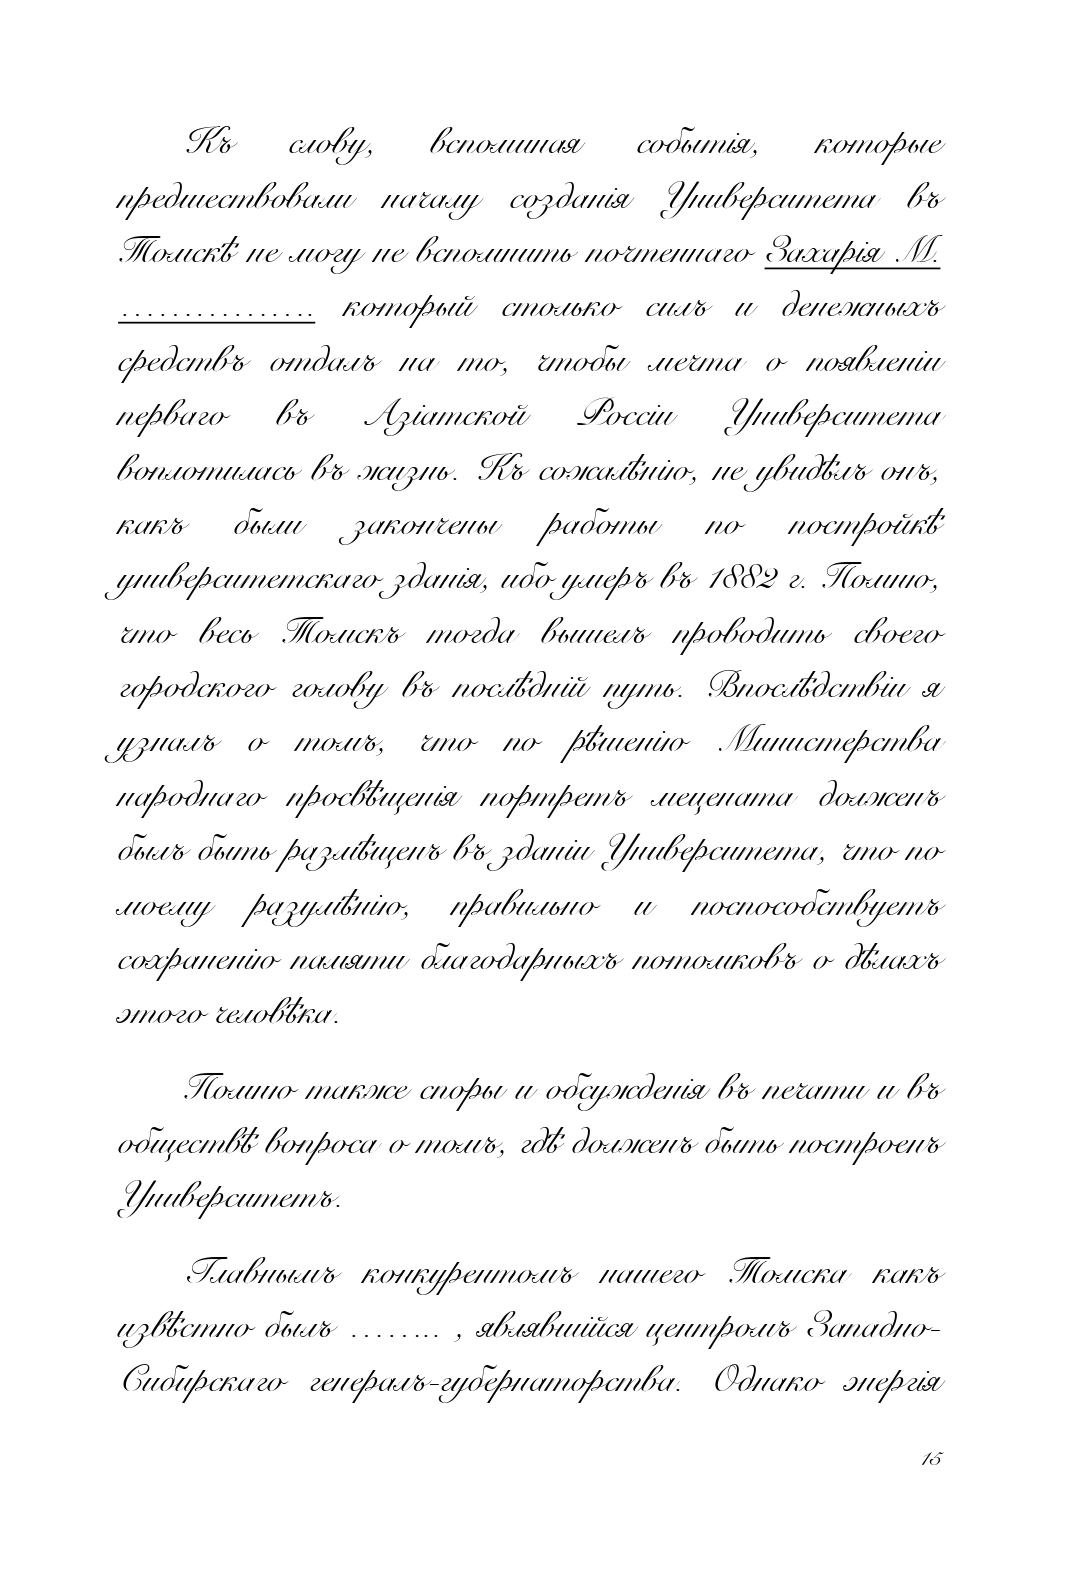 Къ слову, вспоминая событія, которые
предшествовали началу созданія Университета въ
Томскѣ не могу не вспомнить почтеннаго Захарія М.
................ который столько силъ и денежныхъ
средствъ отдалъ на то, чтобы мечта о появленіи
перваго въ Азіатской Россіи Университета
воплотилась въ жизнь. Къ сожалѣнію, не увидѣлъ онъ,
какъ были закончены работы по постройкѣ
университетскаго зданія, ибо умеръ въ 1882 г. Помню,
что весь Томскъ тогда вышелъ проводить своего
городского голову въ послѣдній путь. Впослѣдствіи я
узналъ о томъ, что по рѣшенію Министерства
народнаго просвѣщенія портретъ мецената долженъ
былъ быть размѣщенъ въ зданіи Университета, что по
моему разумѣнію, правильно и поспособствуетъ
сохраненію памяти благодарныхъ потомковъ о дѣлахъ
этого человѣка.
Помню также споры и обсужденія въ печати и въ
обществѣ вопроса о томъ, гдѣ долженъ быть построенъ
Университетъ.
Главнымъ конкурентомъ нашего Томска какъ
извѣстно былъ ........ , являвшійся центромъ Западно-
Сибирскаго генералъ-губернаторства. Однако энергія
15